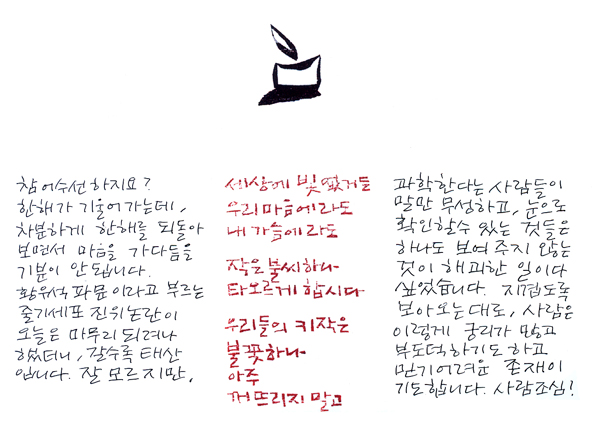 참 어수선 하지요?
한해가 기울어가는데,
차분하게 한해를 되돌아
보면서 마음을 가다듬을
기분이 안됩니다.
황우석 파문이라고 부르는
줄기세포 진위논란이
오늘은 마무리 되려나
했더니, 갈수록 태산
입니다. 잘 모르지만,
세상에 빛 없거든
우리 마음에라도
내 가슴에라도
작은 불씨하나
타오르게 합시다
우리들의 키작은
불꽃하나
아주
꺼뜨리지 말고
과학한다는 사람들이
말만 무성하고, 눈으로
확인할수 있는 것들은
하나도 보여주지 않는
것이 해괴한 일이다
싶었습니다. 지겹도록
보아오는대로, 사람은
이렇게 궁리가 많고
부도덕하기도 하고
믿기어려운 존재이
기도합니다. 사람조심!